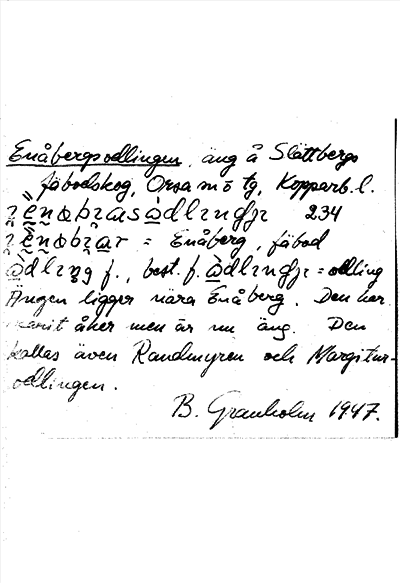 Enåbergsodlingen, äng å Slättbergs
fäbodskog, Orsa m o tg, Kopparb. l.
234
= Enåberg, fäbod
f., best. f. = odling
Ängen ligger nära Enåberg. Den har
varit åker men är nu äng. Den
kallas även Randmyren och Margitur-
odlingen.
B. Granholm 1947.